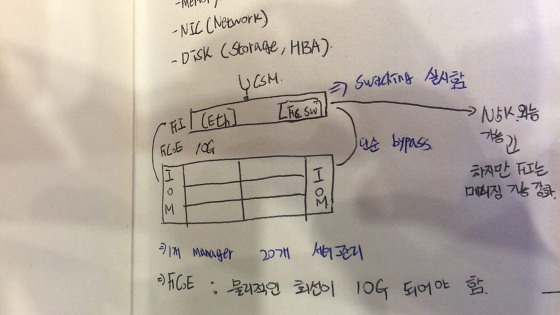 -Memory
-NIC(Network)
-Disk (Storage, HBA).
UCSM.
⇒ Switching 실시함
FI [Eth] [Fic SW]
FCoE 10G
단순 bypass
N5K와 능
가능 간
하지만 FI는
매니징 기능 강화.
I O M
I O M
⇒1개 manager 20개 섀시관리
⇒FCoE : 물리적인 회선이 10G 되어야 함.